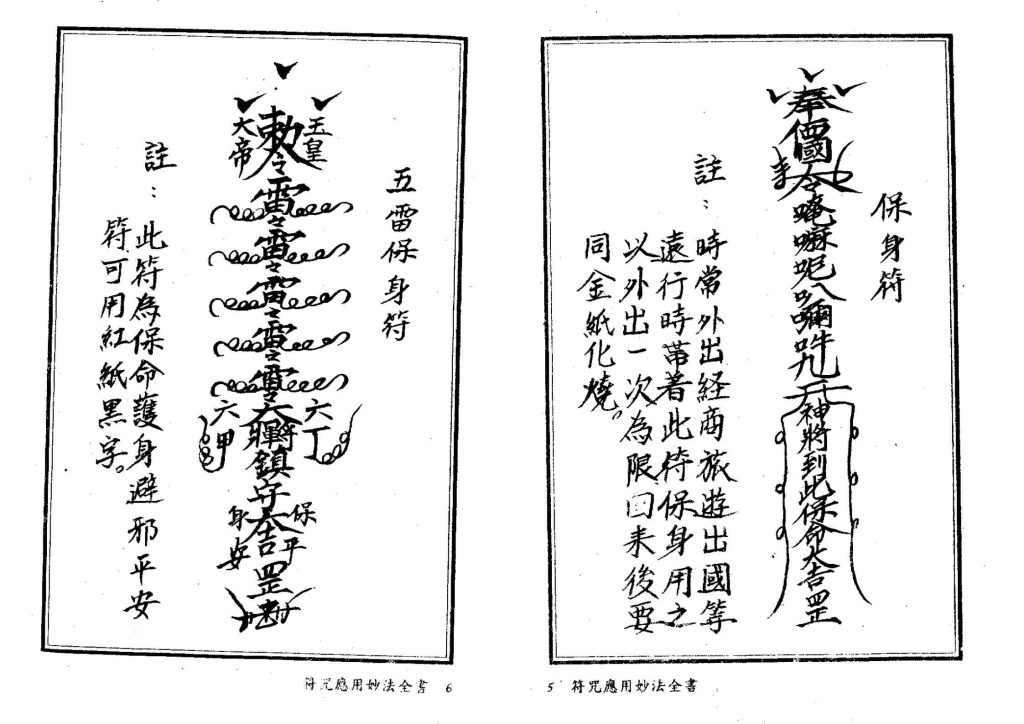 保身符
奉
令
唵嘛呢八囑吽
神將到此保命大吉罡
註：時常外出経商旅遊出國等
遠行時帶著此符保身用之
以外出一次為限回来後要
同金紙化燒。
5 符咒應用妙法全書
五雷保身符
玉皇
敕令
大帝
雷令
雷令
雷令
雷令
雷令
六丁
六甲
鎮守
保
身
平
安
大吉
罡
註：此符為保命護身避邪平安
符可用紅紙黑字。
符咒應用妙法全書 6